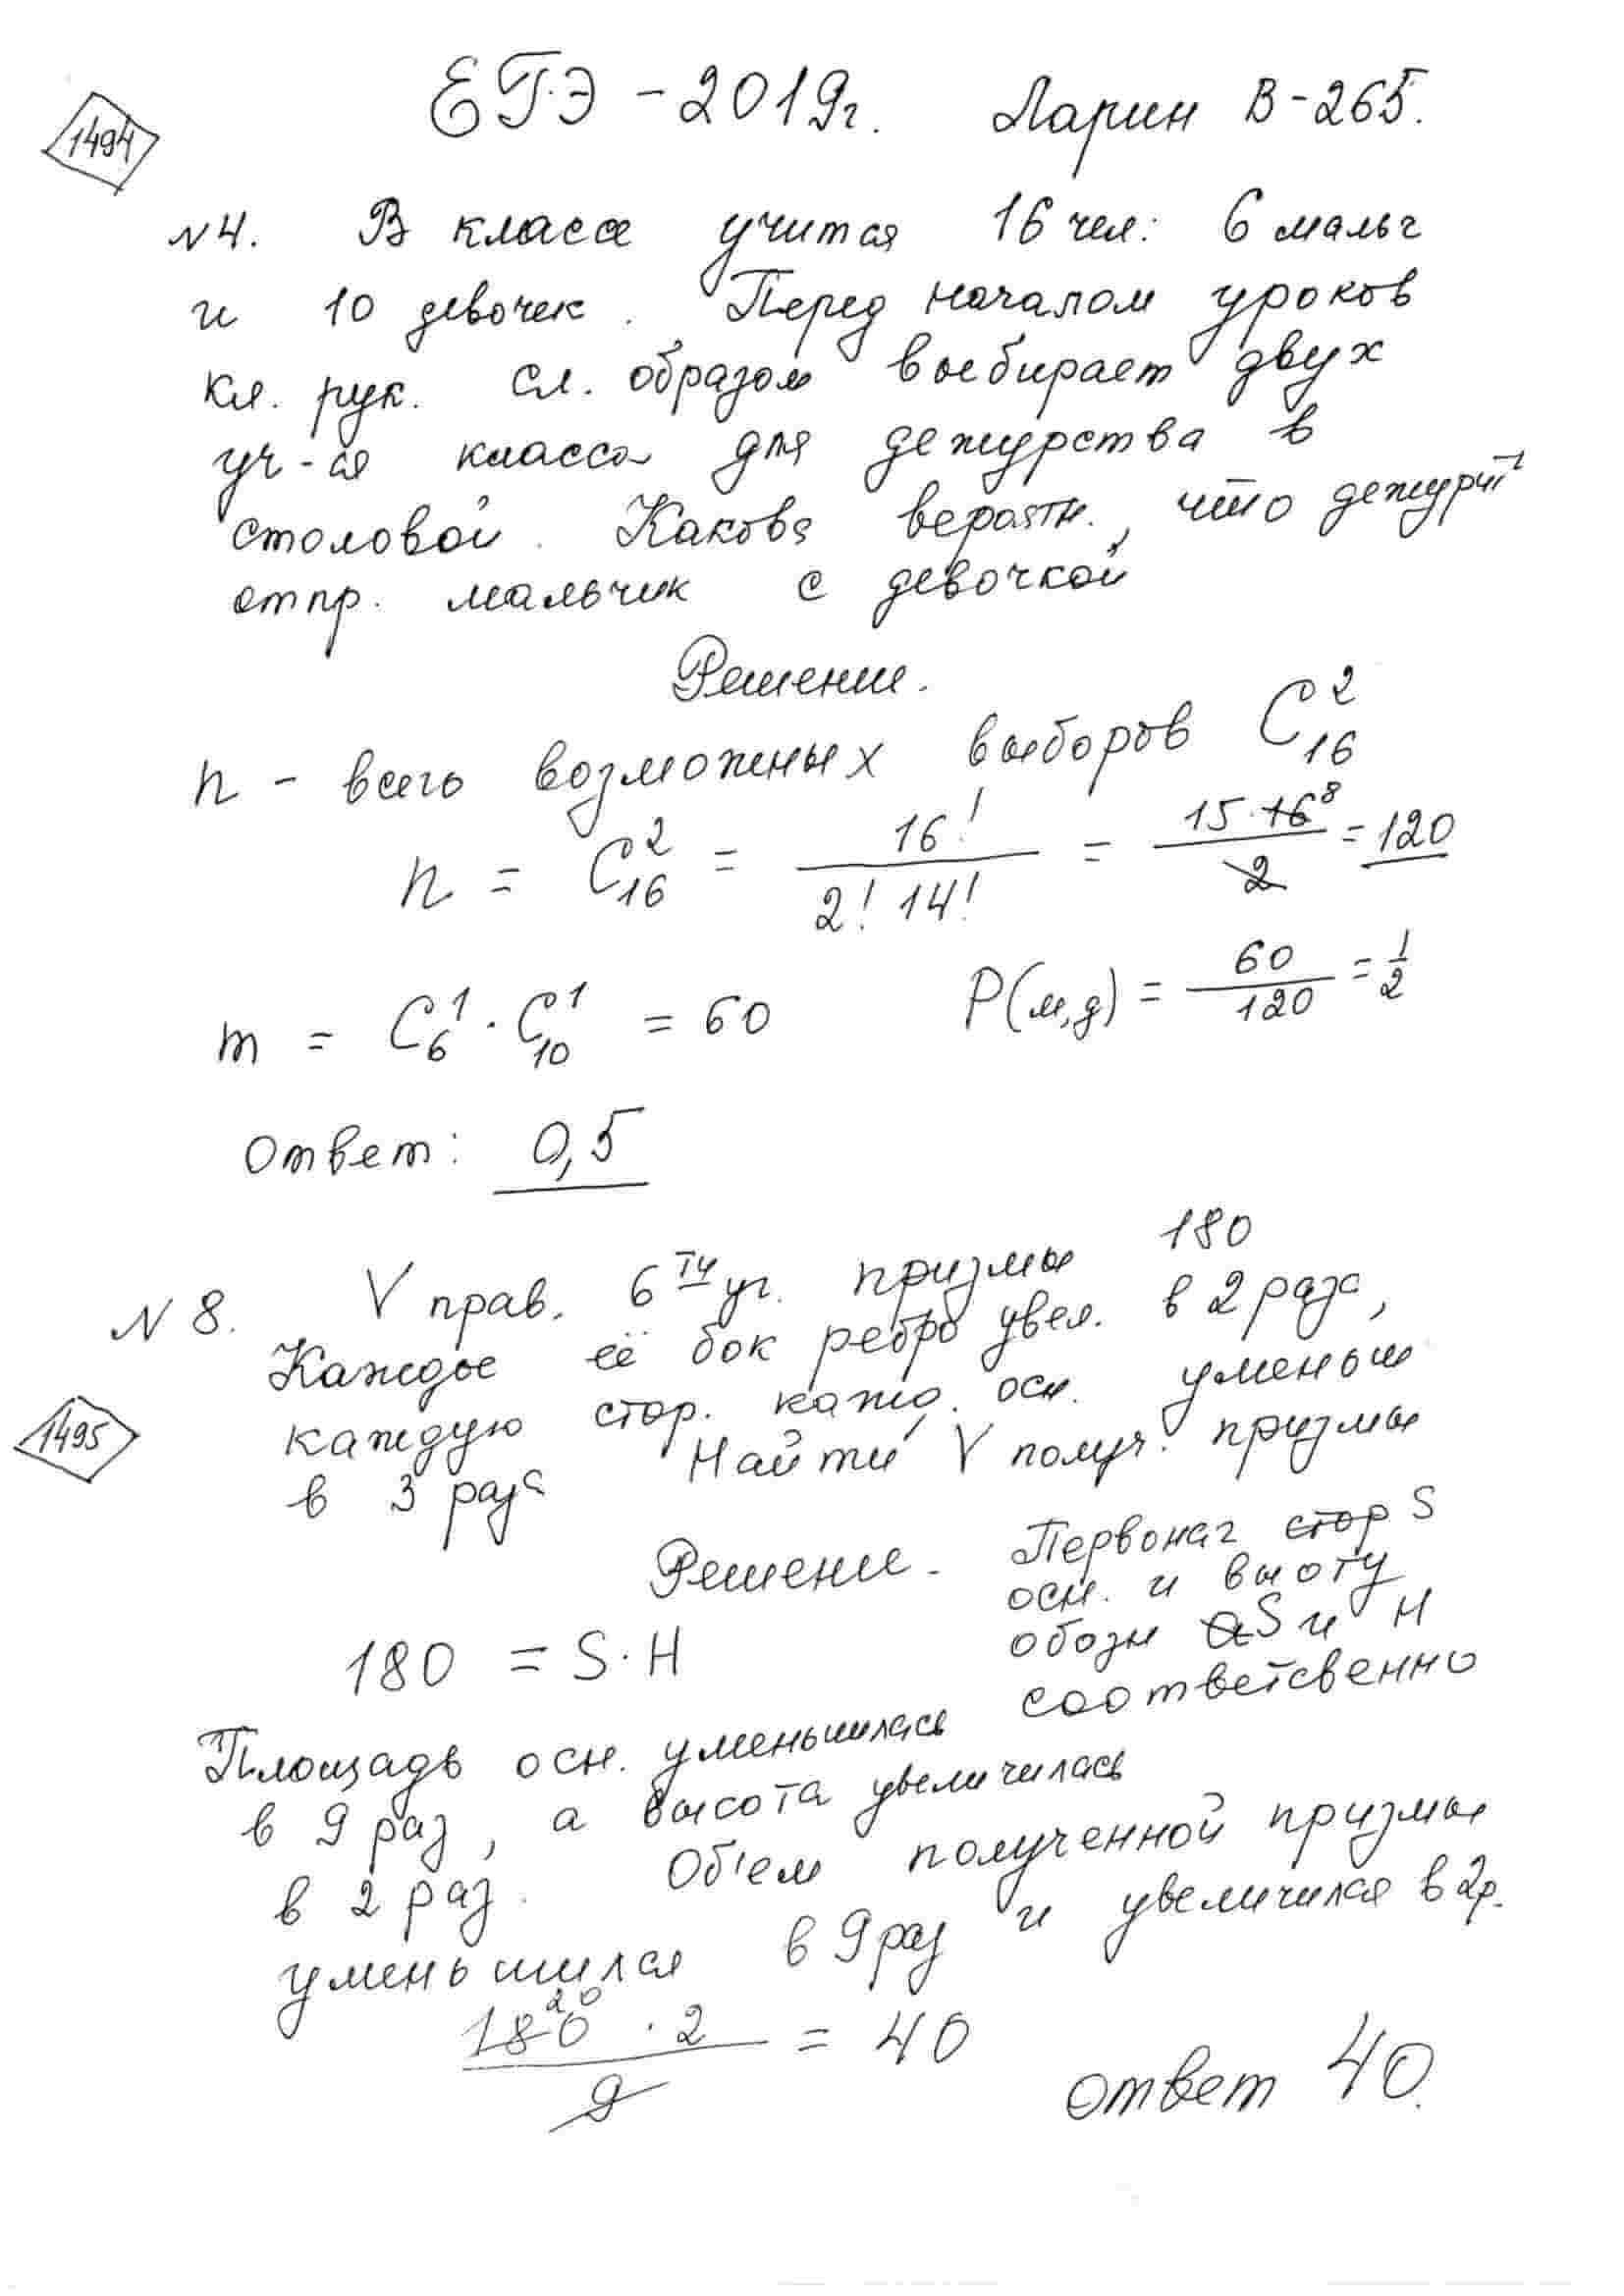 ЕГЭ - 2019г. Ларин В-265.
1494
№4. В классе учится 16 чел: 6 мальч
и 10 девочек. Перед началом уроков
кл. рук. сл. образом выбирает двух
уч-ся класса для дежурства в
столовой. Какова вероятн., что дежурить
отпр. мальчик с девочкой
Решение.
n - всего возможных выборов C²₁₆
n = C²₁₆ = 16! / (2! 14!) = 15·16⁸ / 2 = 120
m = C¹₆ · C¹₁₀ = 60    P(м,д) = 60/120 = 1/2
Ответ: 0,5
№8. V прав. 6ти уг. призмы 180
Каждое её бок ребро увел. в 2 раза,
каждую стор. кажд. осн. уменьш
1495
в 3 раза Найти V получ. призмы
Решение. Первонач стор S
осн. и высоту
180 = S·H обозн a S и H
соответсвенно
Площадь осн. уменьшилась
в 9 раз, а высота увеличилась
в 2 раз. Об'ем полученной призмы
уменьшился в 9 раз и увеличился в 2р.
180²⁰ · 2 / 9 = 40
ответ 40.